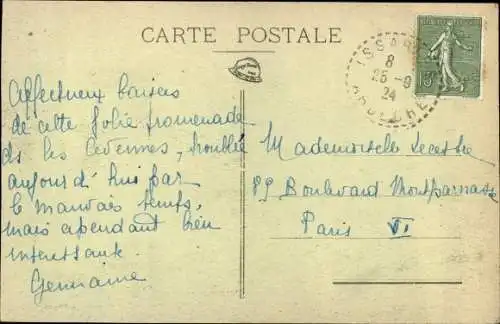 CARTE POSTALE
ISSAR
8
25 - 9
24
ARDECHE
15
Affectueux baisers
de cette jolie promenade
ds les Cevennes, troublée
aujourd'hui par
le mauvais temps,
mais cependant bien
interessante.
Germaine
Mademoiselle
89 Boulevard Montparnasse
Paris VI